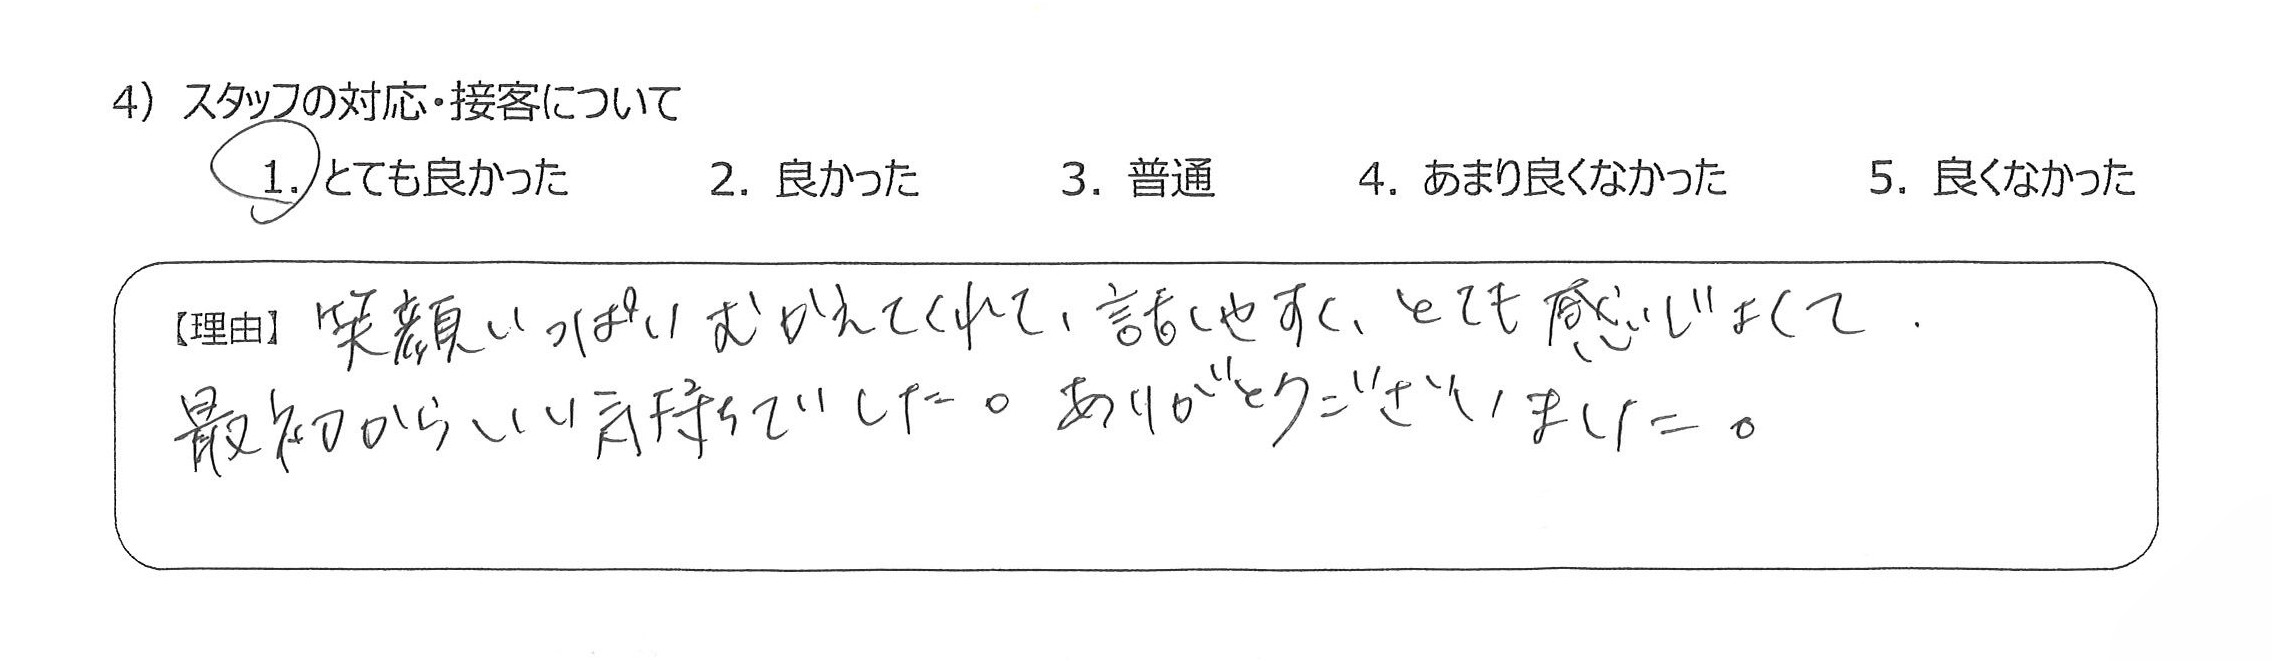 4) スタッフの対応・接客について
1. とても良かった 2. 良かった 3. 普通 4. あまり良くなかった 5. 良くなかった
【理由】笑顔いっぱいむかえてくれて、話しやすく、とても感いじよくて.
最初からいい気持ちでいした。ありがとうございました。